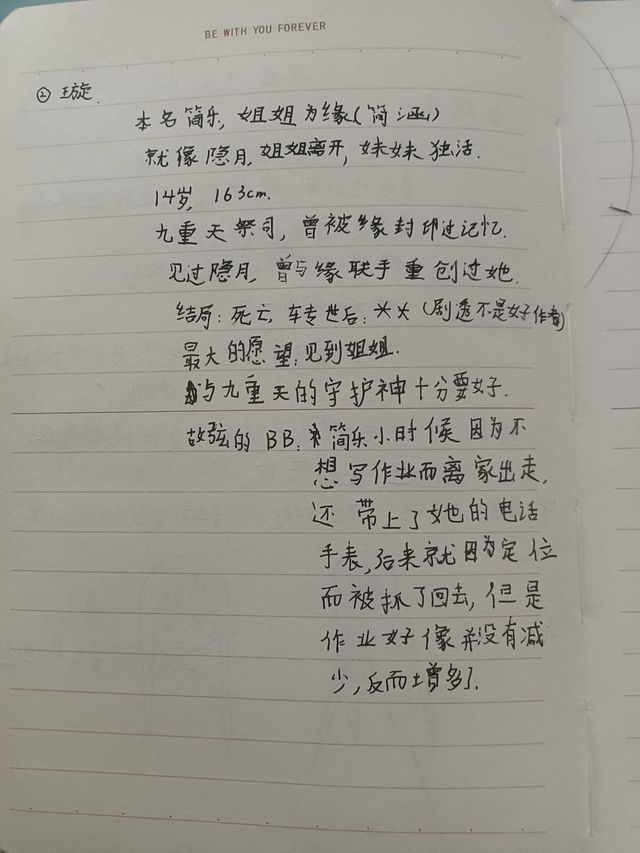 BE WITH YOU FOREVER
② 璇.
本名简乐, 姐姐为缘(简涵)
就像隐月, 姐姐离开, 妹妹独活.
14岁, 163cm.
九重天祭司, 曾被缘封印过记忆.
见过隐月, 曾与缘联手重创过她.
结局: 死亡, 转世后: 火火 (剧透不是好作者)
最大的愿望: 见到姐姐.
与九重天的守护神十分要好.
故弦的BB: 简乐小时候因为不
想写作业而离家出走,
还带上了她的电话
手表, 后来就因为定位
而被抓了回去, 但是
作业好像并没有减
少, 反而增多了.